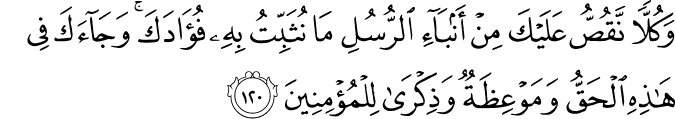 وَكُلًّا نَّقُصُّ عَلَيْكَ مِنْ أَنۢبَآءِ ٱلرُّسُلِ مَا نُثَبِّتُ بِهِۦ فُؤَادَكَ ۚ وَجَآءَكَ فِى
هَٰذِهِ ٱلْحَقُّ وَمَوْعِظَةٌ وَذِكْرَىٰ لِلْمُؤْمِنِينَ ١٢٠